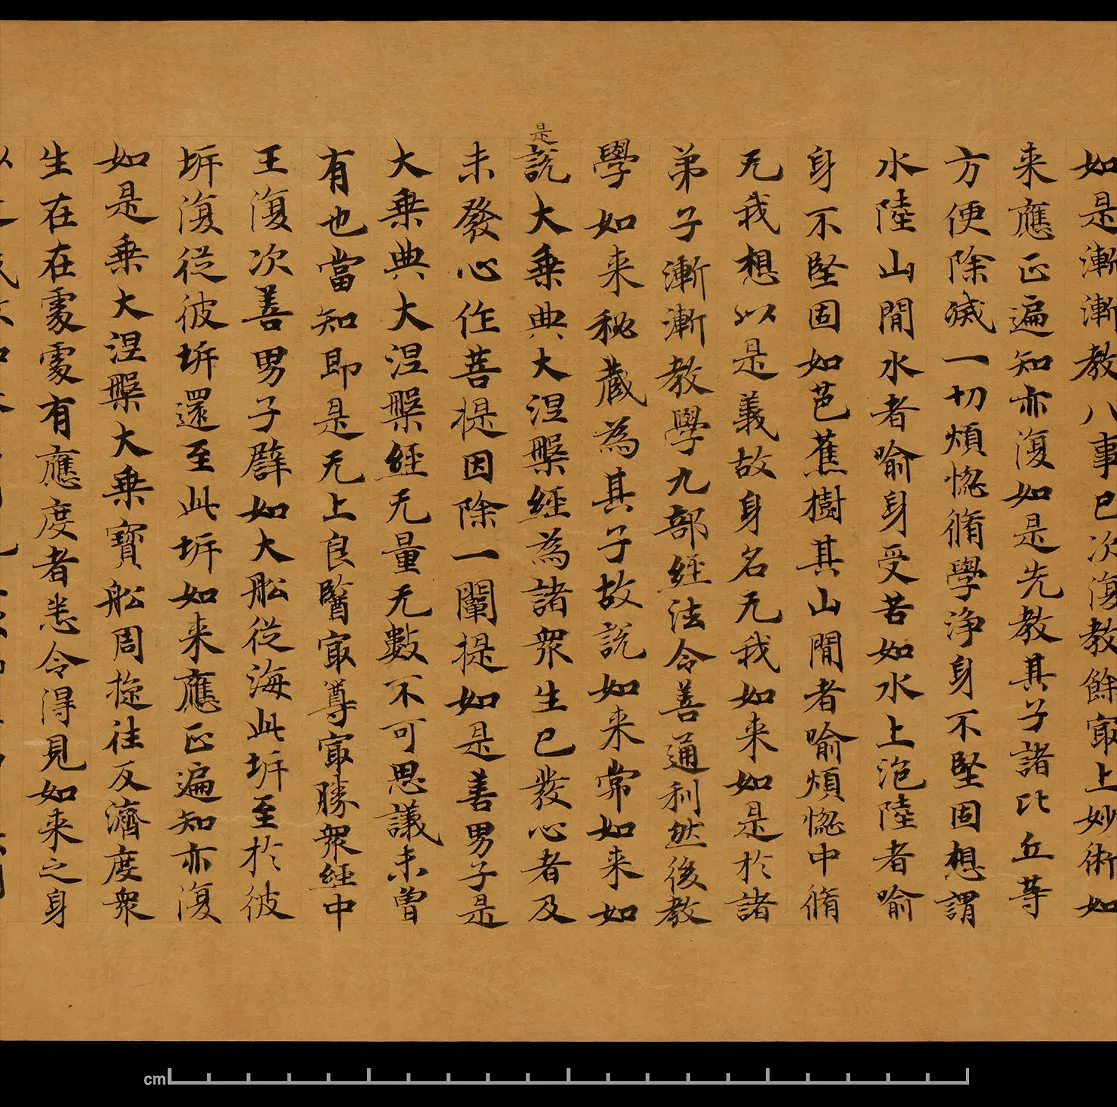 如是漸漸教八事已次復教餘冣上妙術如
来應正遍知亦復如是先教其子諸比丘等
方便除滅一切煩惚脩學淨身不堅固想謂
水陸山閒水者喻身受苦如水上泡陸者喻
身不堅固如芭蕉樹其山閒者喻煩惚中脩
无我想以是義故身名无我如来如是於諸
弟子漸漸教學九部經法令善通利然後教
學如来秘藏為其子故說如来常如来如
是
說大乗典大涅槃經為諸衆生已發心者及
未發心作菩提因除一闡提如是善男子是
大乗典大涅槃經无量无數不可思議未曽
有也當知即是无上良醫冣尊冣勝衆經中
王復次善男子譬如大舩從海此坼至於彼
坼復從彼坼還至此坼如来應正遍知亦復
如是乗大涅槃大乗寳舩周旋往反濟度衆
生在在䖏䖏有應度者悉令得見如来之身